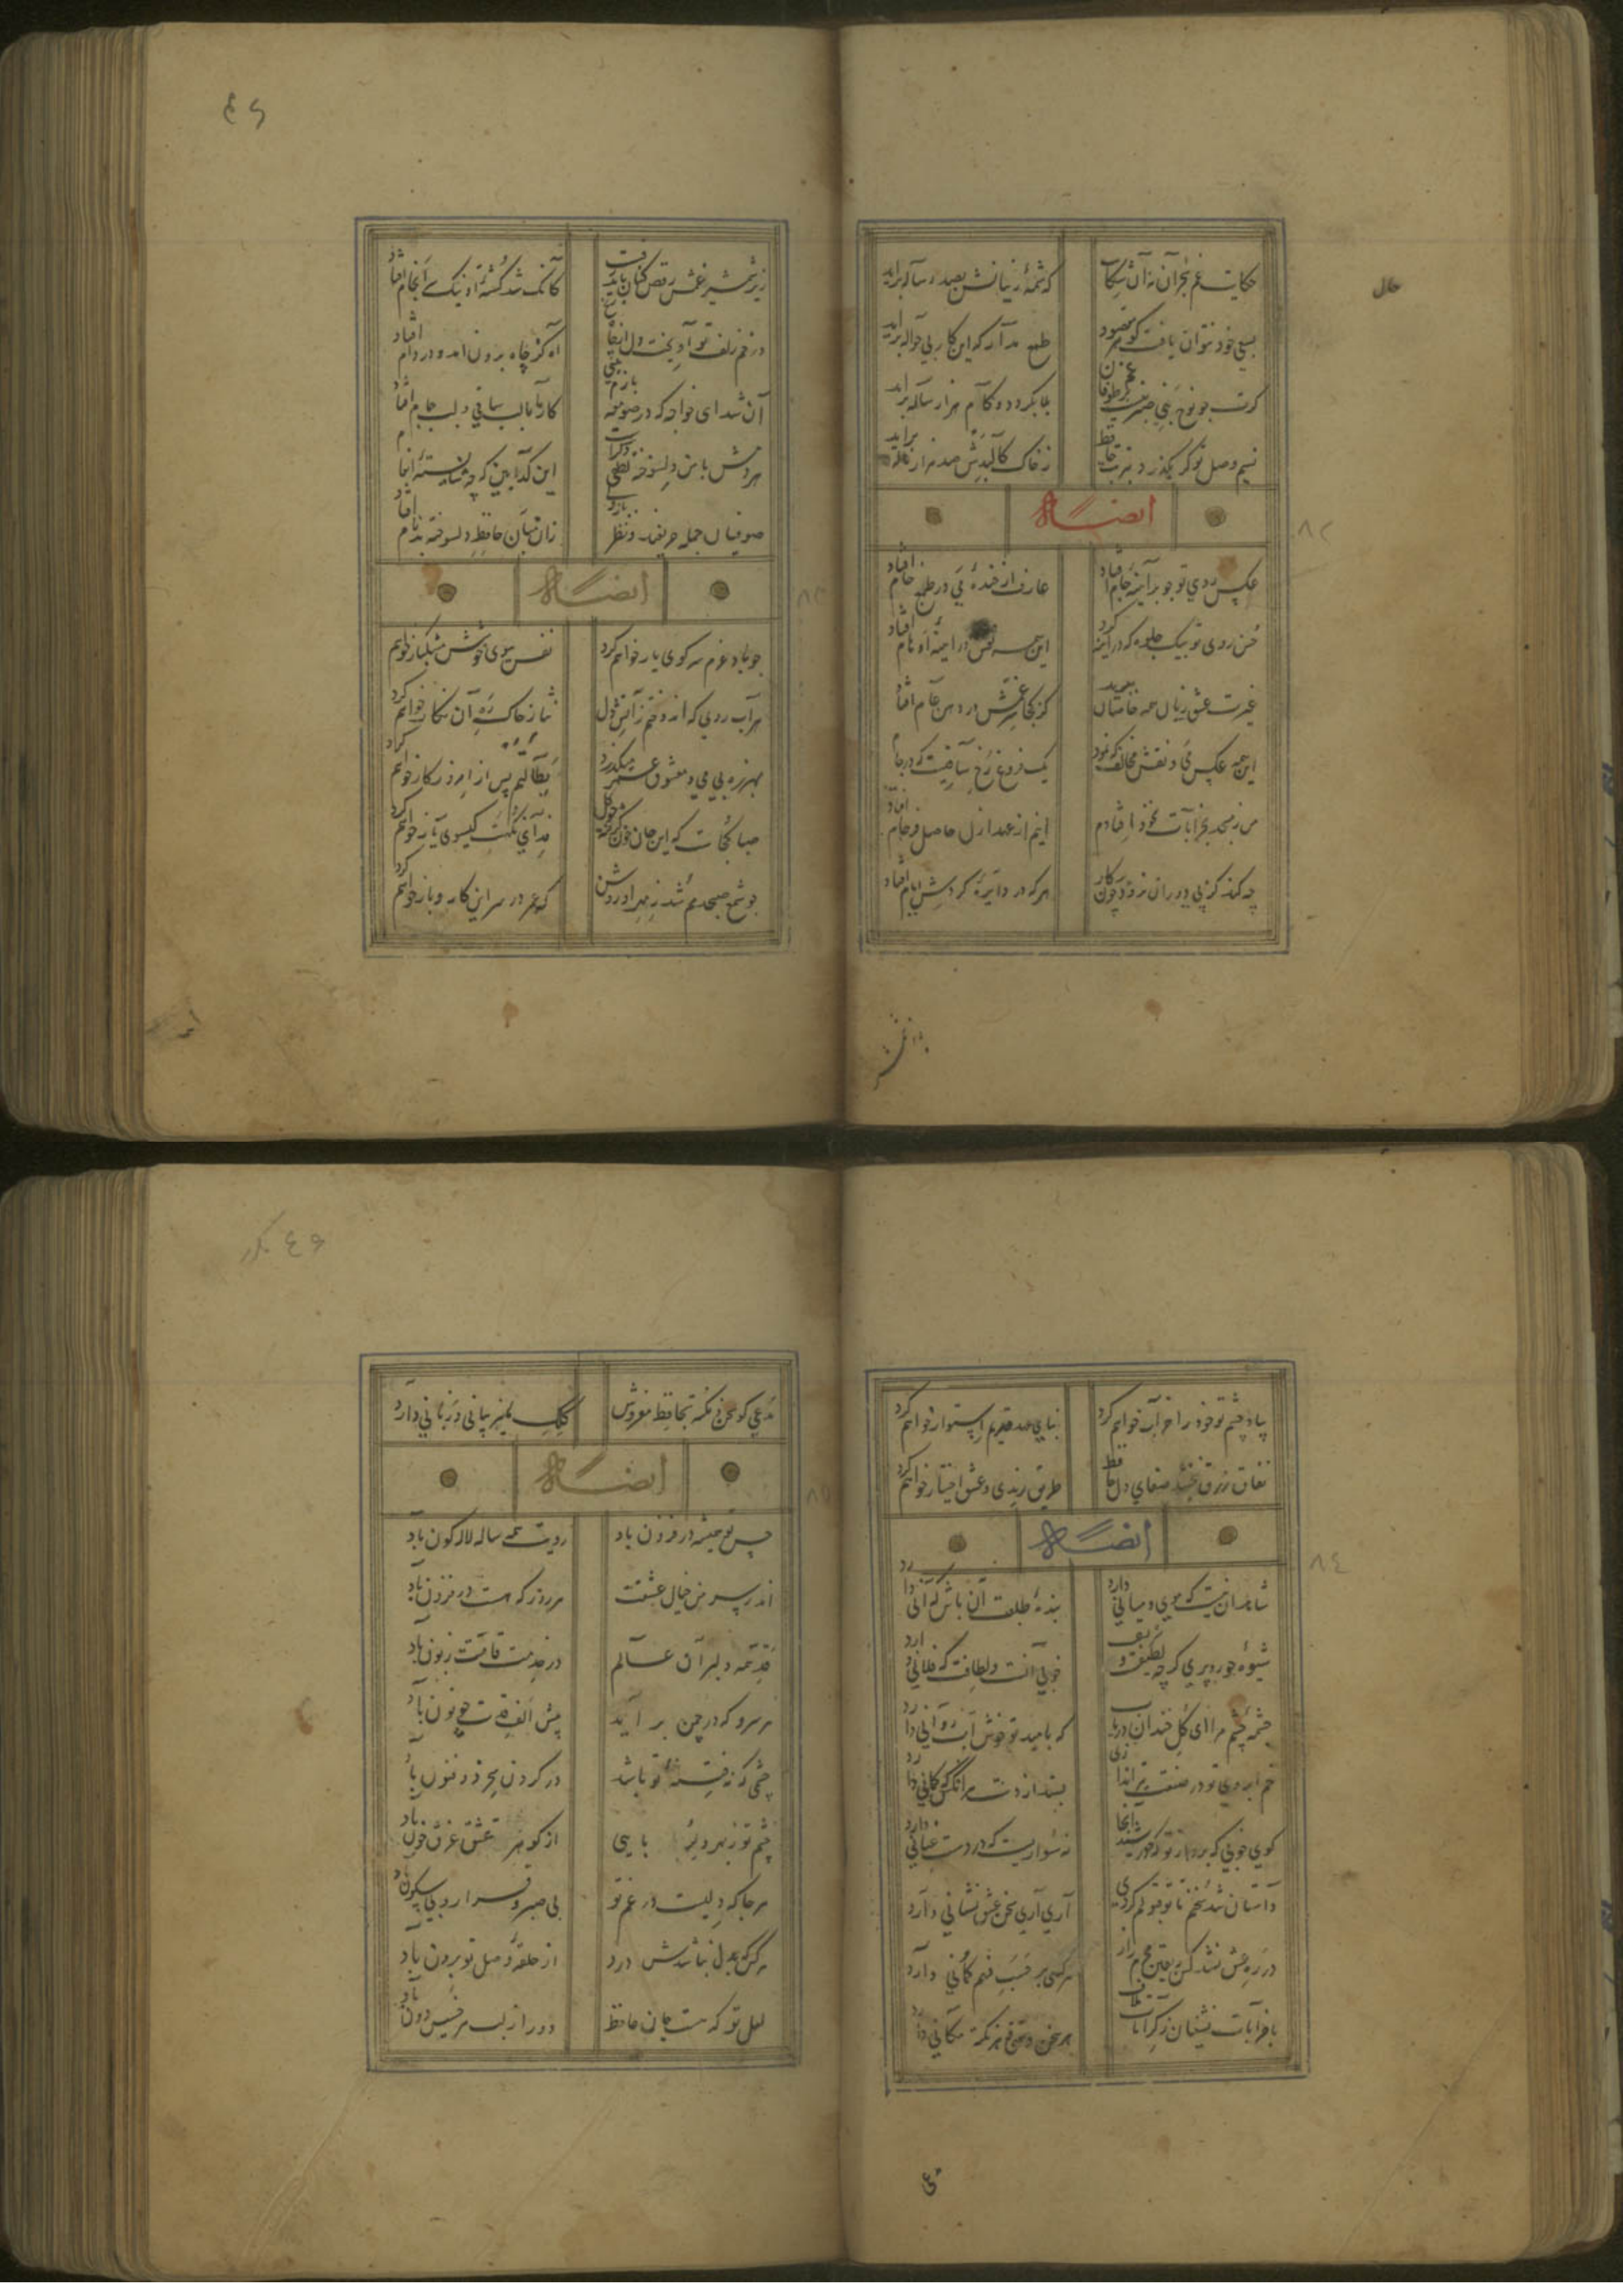 حال
حکایت غم هجران نه آن شکایت که شمهٔ زبیانش بصد رساله براید
بسعی خود نتوان یافت گوهر مقصود طمع مدار که این کار بی حواله براید
گرت چو نوح نبی صبر هست بر غم طوفان بلا بگردد و کام هزار ساله براید
نسیم وصل تو گر بگذرد بتربت حافظ ز خاک کالبدش صد هزار ناله براید
ایضاً له
۸۲
عکس روی تو چو بر آینهٔ جام افتاد عارف از خندهٔ می در طمع خام افتاد
حسن روی تو بیک جلوه که در آینه کرد این همه نقش در آینهٔ اوهام افتاد
غیرت عشق زبان همه خاصان ببرید کز کجا سر غمش در دهن عام افتاد
این همه عکس می و نقش مخالف که نمود یک فروغ رخ ساقیست که در جام افتاد
من ز مسجد بخرابات نه خود افتادم اینم از عهد ازل حاصل فرجام افتاد
چه کند کز پی دوران نرود چون پرکار هر که در دایرهٔ گردش ایام افتاد
زیر شمشیر
۴۶
زیر شمشیر غمش رقص کنان باید رفت کانکه شد کشتهٔ او نیک سرانجام افتاد
در خم زلف تو آویخت دل از چاه زنخ آه کز چاه برون آمد و در دام افتاد
آن شد ای خواجه که در صومعه بازم بینی کار ما با لب ساقی و لب جام افتاد
هر دمش با من دلسوخته لطفی دگرست این گدا بین که چه شایستهٔ انعام افتاد
صوفیان جمله حریفند و نظر باز ولی زان میان حافظ دلسوخته بدنام افتاد
ایضاً له
۸۳
چو باد عزم سر کوی یار خواهم کرد نفس ببوی خوشش مشکبار خواهم کرد
هر آب روی که اندوختم ز دانش و دل نثار خاک ره آن نگار خواهم کرد
بهرزه بی می و معشوق عمر میگذرد بطالتم بس از امروز کار خواهم کرد
صبا کجاست که این جان خون گرفته چو گل فدای نکهت گیسوی یار خواهم کرد
چو شمع صبحدمم شد ز مهر او روشن که عمر در سر این کار و بار خواهم کرد
بیاد چشم تو خود را خراب خواهم کرد بنای عهد قدیم استوار خواهم کرد
نفاق و زرق نبخشد صفای دل حافظ طریق رندی و عشق اختیار خواهم کرد
ایضاً له
۸٤
شاهد آن نیست که مویی و میانی دارد بندهٔ طلعت آن باش که آنی دارد
شیوهٔ حور و پری گر چه لطیفست ولیک خوبی آنست و لطافت که فلانی دارد
چشمهٔ چشم مرا ای گل خندان دریاب که بامید تو خوش آب روانی دارد
خم ابروی تو در صنعت تیر اندازی بستد از دست هر آنکس که کمانی دارد
گوی خوبی که برد از تو که خورشید اینجا نه سواریست که در دست عنانی دارد
دلنشان شد سخنم تا تو قبولم کردی آری آری سخن عشق نشانی دارد
در ره عشق نشد کس بیقین محرم راز هر کسی بر حسب فهم گمانی دارد
با خرابات نشینان ز کرامات ملاف هر سخن وقتی و هر نکته مکانی دارد
۴۶ مکرر
مدعی گو سخن و نکته بحافظ مفروش کلک ما نیز بیانی و زبانی دارد
ایضاً له
۸۵
حسن تو همیشه در فزون باد رویت همه ساله لاله گون باد
اندر سر من خیال عشقت هر روز که هست در فزون باد
قد همه دلبران عالم در خدمت قامتت زبون باد
هر سرو که در چمن بر آید پیش الف قدت چو نون باد
چشمی که نه فتنهٔ تو باشد در گردن بحر ذو فنون باد
چشم تو ز بهر دلربایی از گوهر عشق غرق خون باد
هر جا که دلیست در غم تو بی صبر و قرار و بی سکون باد
هر کس که بدل نباشدش درد از حلقهٔ وصل تو برون باد
لعل تو که هست جان حافظ دور از لب هر خسیس دون باد